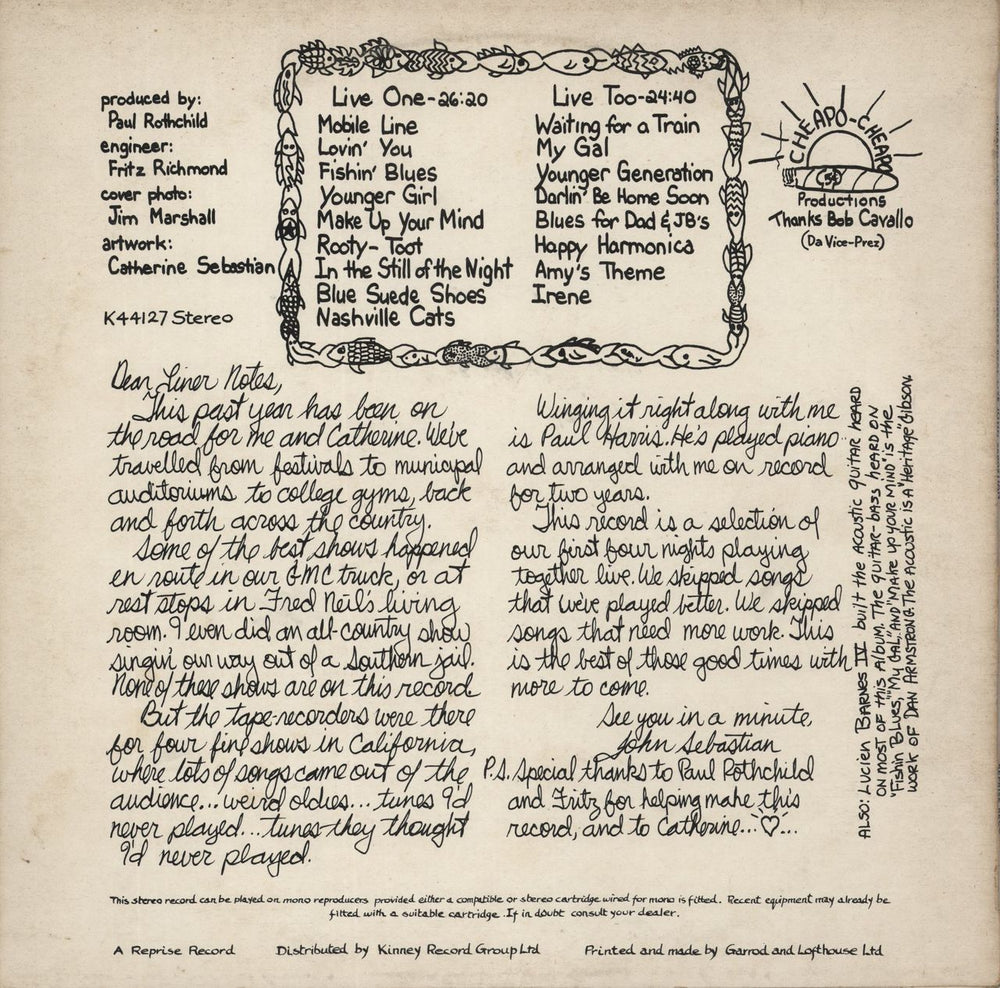 produced by:
Paul Rothchild
engineer:
Fritz Richmond
cover photo:
Jim Marshall
artwork:
Catherine Sebastian
K44127 Stereo
Live One-26:20
Mobile Line
Lovin' You
Fishin' Blues
Younger Girl
Make Up Your Mind
Rooty-Toot
In the Still of the Night
Blue Suede Shoes
Nashville Cats
Live Too-24:40
Waiting for a Train
My Gal
Younger Generation
Darlin' Be Home Soon
Blues for Dad & JB's
Happy Harmonica
Amy's Theme
Irene
CHEAPO-CHEAPO
Productions
Thanks Bob Cavallo
(Da Vice-Prez)
Dear Liner Notes,
This past year has been on
the road for me and Catherine. We've
travelled from festivals to municipal
auditoriums to college gyms, back
and forth across the country.
Some of the best shows happened
en route in our GMC truck, or at
rest stops in Fred Neil's living
room. I even did an all-country show
singin' our way out of a Southern jail.
None of these shows are on this record.
But the tape-recorders were there
for four fine shows in California,
where lots of songs came out of the
audience... weird oldies... tunes I'd
never played... tunes they thought
I'd never played.
Winging it right along with me
is Paul Harris. He's played piano
and arranged with me on record
for two years.
This record is a selection of
our first four nights playing
together live. We skipped songs
that we've played better. We skipped
songs that need more work. This
is the best of those good times with
more to come.
See you in a minute,
John Sebastian
P.S. Special thanks to Paul Rothchild
and Fritz for helping make this
record, and to Catherine...♡...
ALSO: LUCIEN BARNES IV built the ACOUSTIC GUITAR HEARD
ON MOST OF THIS ALBUM. THE GUITAR-BASS HEARD ON
"FISHIN BLUES," "MY GAL," AND "MAKE UP YOUR MIND" IS THE
WORK OF DAN ARMSTRONG. THE ACOUSTIC IS A "HERITAGE" GIBSON.
This stereo record can be played on mono reproducers provided either a compatible or stereo cartridge wired for mono is fitted. Recent equipment may already be
fitted with a suitable cartridge. If in doubt consult your dealer.
A Reprise Record Distributed by Kinney Record Group Ltd Printed and made by Garrod and Lofthouse Ltd